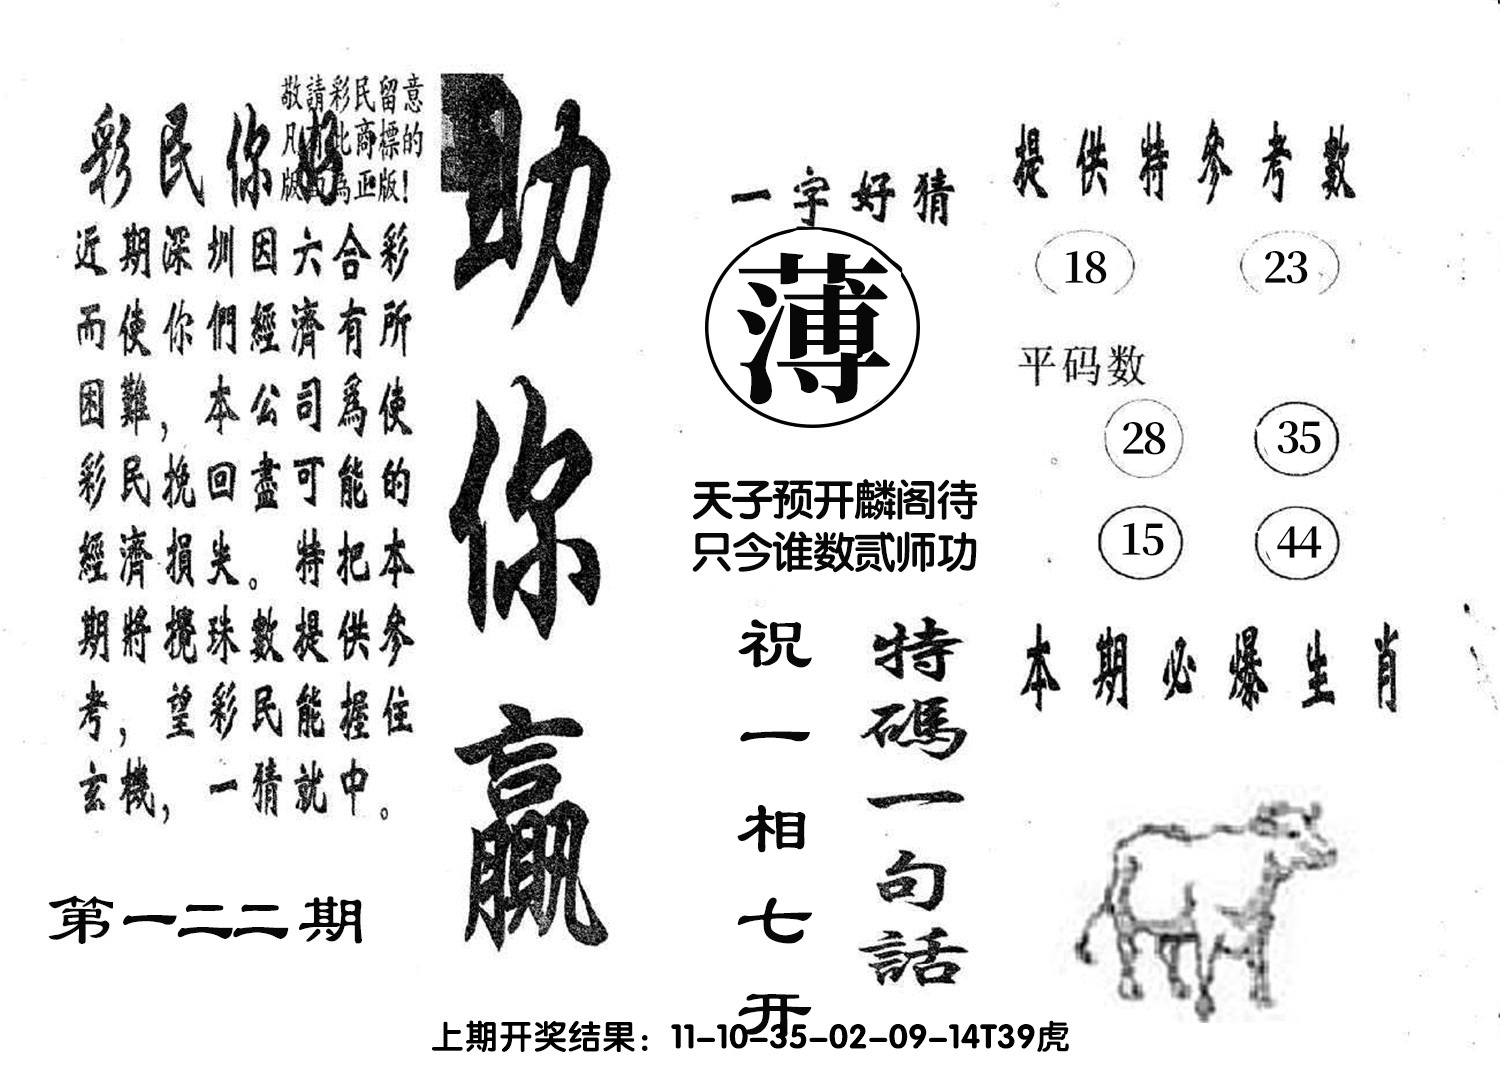 敬請彩民留意
凡有此商標的
版面為正版!
彩民你好
近期深圳因六合彩
而使你們經濟有所
困難，本公司爲使
彩民挽回盡可能的
經濟損失。特把本
期將攪珠數提供參
考，望彩民能握住
玄機，一猜就中。
第一二二期
助你贏
一字好猜
薄
天子预开麟阁待
只今谁数贰师功
特碼一句話
祝一相七开
提供特參考數
18 23
平码数
28 35
15 44
本期必爆生肖
上期开奖结果：11-10-35-02-09-14T39虎